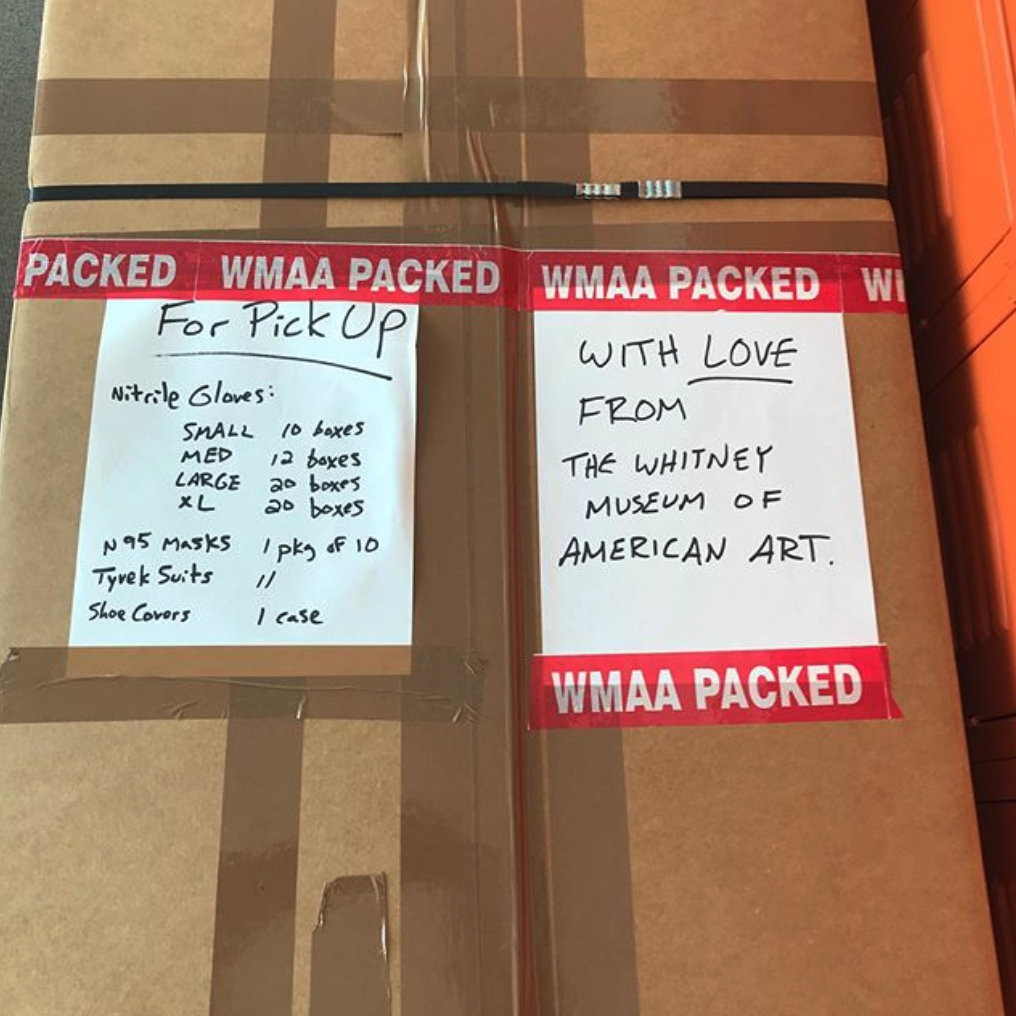 PACKED WMAA PACKED WMAA PACKED WM
For Pick Up
Nitrile Gloves:
SMALL 10 boxes
MED 12 boxes
LARGE 20 boxes
XL 20 boxes
N95 Masks 1 pkg of 10
Tyvek Suits 11
Shoe Covers 1 case
WITH LOVE
FROM
THE WHITNEY
MUSEUM OF
AMERICAN ART.
WMAA PACKED